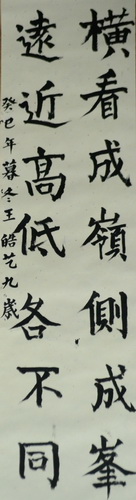 橫看成嶺側成峯
遠近高低各不同
癸巳年暮冬王皓艺九歲